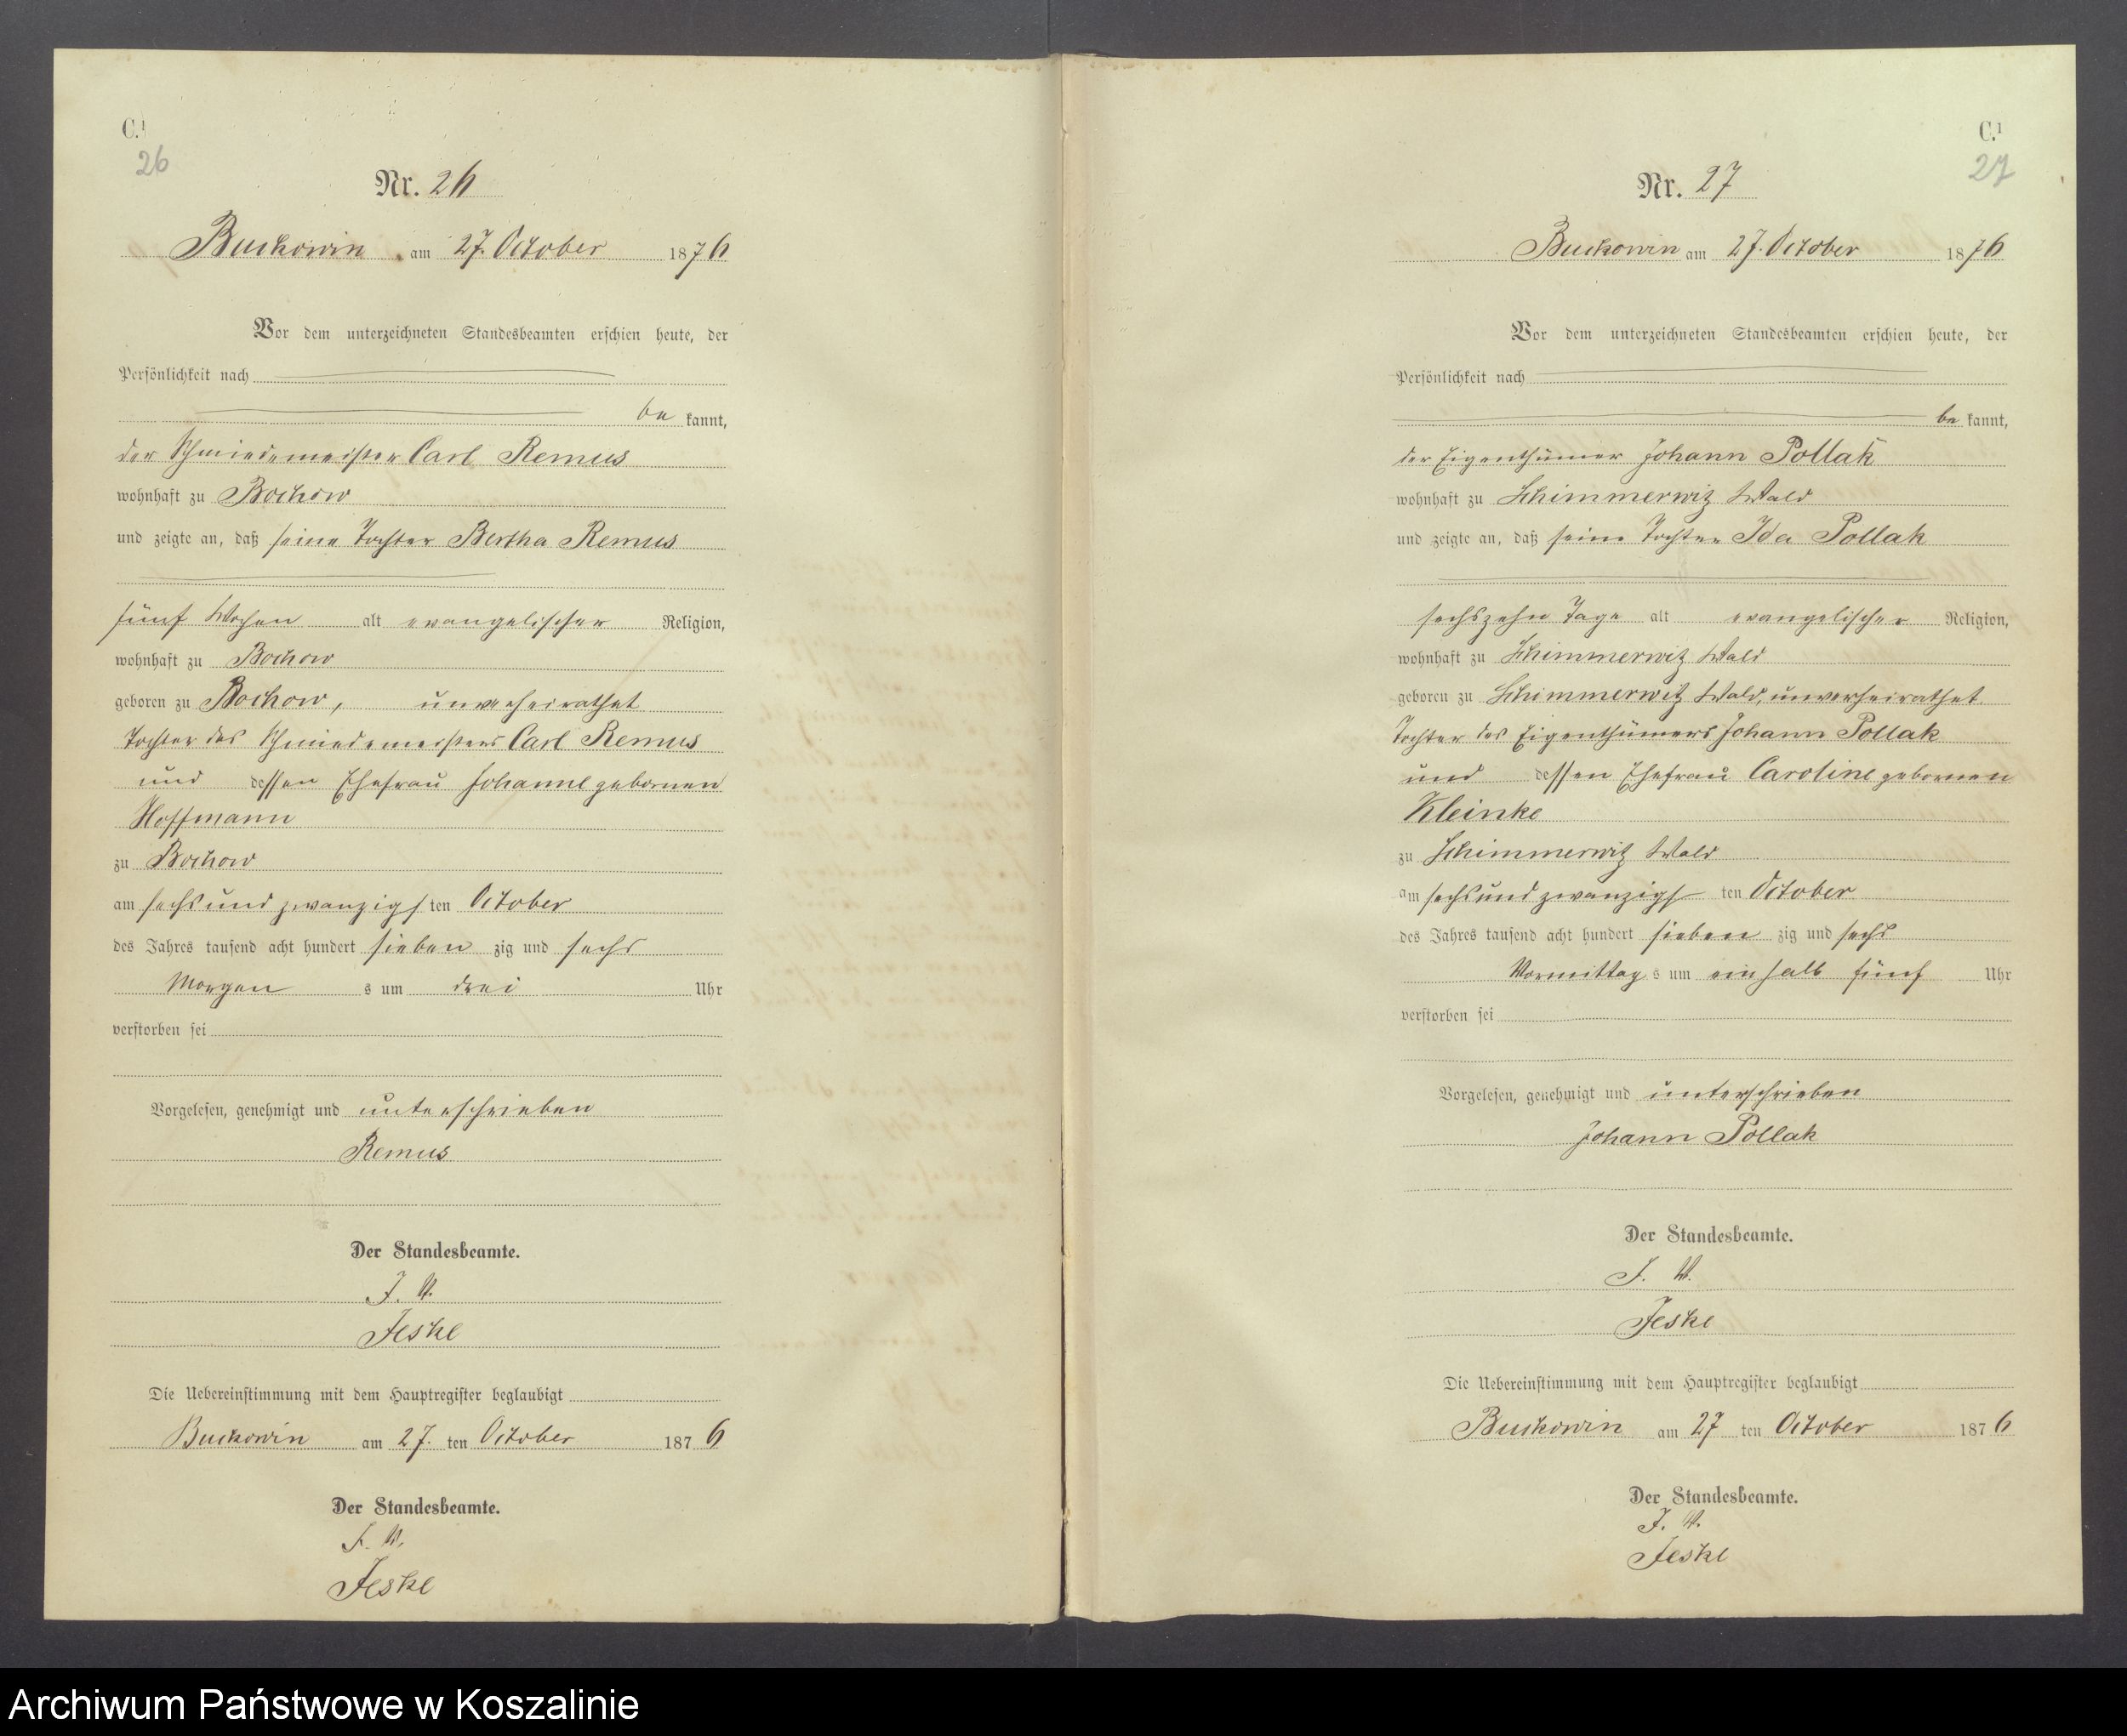 C.1
26
Nr. 26
Buckowin am 27. October 1876
Vor dem unterzeichneten Standesbeamten erschien heute, der
Persönlichkeit nach
be kannt,
der Schmiedemeister Carl Remus
wohnhaft zu Bochow
und zeigte an, daß seine Tochter Bertha Remus
fünf Wochen alt evangelischer Religion,
wohnhaft zu Bochow
geboren zu Bochow, unverheirathet
Tochter des Schmiedemeisters Carl Remus
und dessen Ehefrau Johanne gebornen
Hoffmann
zu Bochow
am sechsundzwanzigsten October
des Jahres tausend acht hundert sieben zig und sechs
Morgen s um drei Uhr
verstorben sei
Vorgelesen, genehmigt und unterschrieben
Remus
Der Standesbeamte.
J. V.
Jeske
Die Uebereinstimmung mit dem Hauptregister beglaubigt
Buckowin am 27. ten October 1876
Der Standesbeamte.
J. V.
Jeske
C.1
27
Nr. 27
Buckowin am 27. October 1876
Vor dem unterzeichneten Standesbeamten erschien heute, der
Persönlichkeit nach
be kannt,
der Eigenthümer Johann Pollak
wohnhaft zu Schimmerwitz Wald
und zeigte an, daß seine Tochter Ida Pollak
sechszehn Tage alt evangelischer Religion,
wohnhaft zu Schimmerwitz Wald
geboren zu Schimmerwitz Wald, unverheirathet
Tochter des Eigenthümers Johann Pollak
und dessen Ehefrau Caroline gebornen
Kleinke
zu Schimmerwitz Wald
am sechsundzwanzigsten October
des Jahres tausend acht hundert sieben zig und sechs
Vormittag s um ein halb fünf Uhr
verstorben sei
Vorgelesen, genehmigt und unterschrieben
Johann Pollak
Der Standesbeamte.
J. V.
Jeske
Die Uebereinstimmung mit dem Hauptregister beglaubigt
Buckowin am 27 ten October 1876
Der Standesbeamte.
J. V.
Jeske
Archiwum Państwowe w Koszalinie